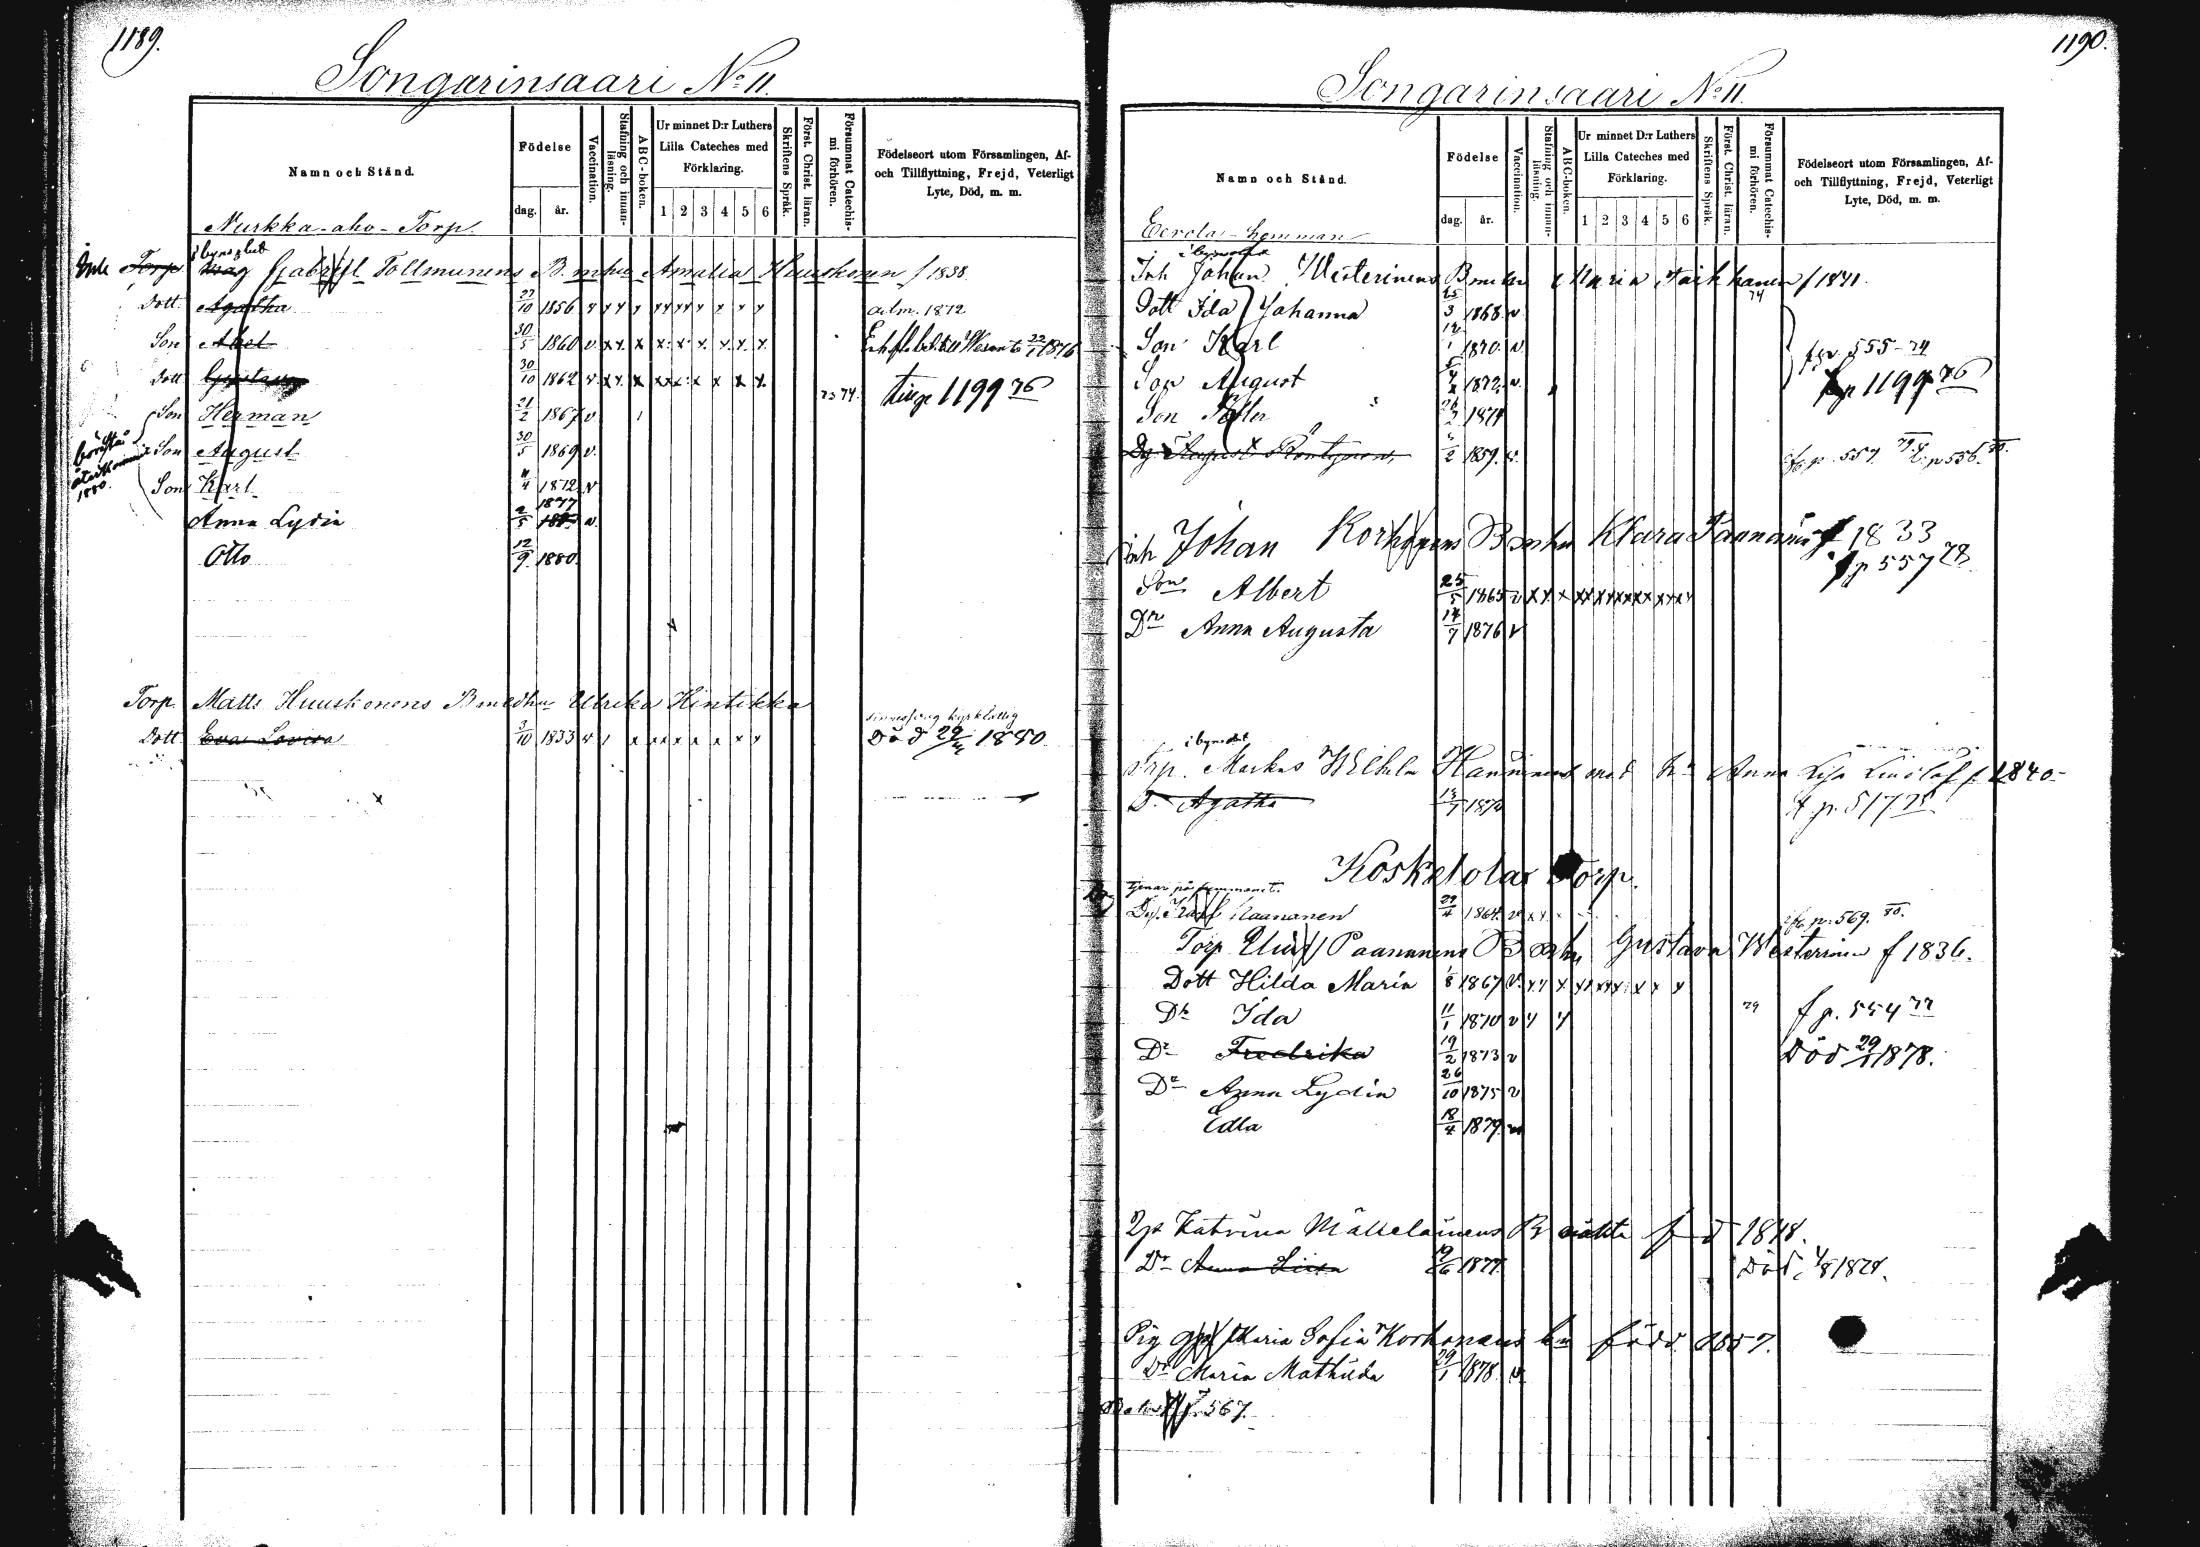 1189.
Songarinsaari No 11.
Namn och Stånd.
Födelse
dag. år.
Vaccination.
Stafning och innan-läsning.
ABC-boken.
Ur minnet D:r Luthers Lilla Cateches med Förklaring.
1 2 3 4 5 6
Skriftens Språk.
Först. Christ. läran.
Försummat Catechismi förhören.
Födelseort utom Församlingen, Af- och Tillflyttning, Frejd, Veterligt Lyte, Död, m. m.
Nurkka-aho-Torp
Torp Gabriel Tollmunens B. m hu Amalia Huuskonen f 1838.
Dott Agatha 22/10 1856 v x x x x x x x x x x adm. 1872
Son Abel 30/5 1860 v x x x x x x x x x 22/1 1876
Dott Gustava 30/10 1862 v x x x x x x x x x x 73 74. 1199 76
Son Herman 21/2 1867 v
Son August 30/5 1869 v.
Son Karl 4/4 1872 v
1880.
Anna Lydia 2/5 1877 v.
Otto 12/9 1880.
Torp. Matts Huuskonens B medhu Ulrika Hintikka
Dott Eva Lovisa 3/10 1833 v Död 29/4 1880.
1190.
Songarinsaari No 11.
Namn och Stånd.
Födelse
dag. år.
Vaccination.
Stafning och innan-läsning.
ABC-boken.
Ur minnet D:r Luthers Lilla Cateches med Förklaring.
1 2 3 4 5 6
Skriftens Språk.
Först. Christ. läran.
Försummat Catechismi förhören.
Födelseort utom Församlingen, Af- och Tillflyttning, Frejd, Veterligt Lyte, Död, m. m.
Eerola-hemman
Inh Johan Westerinens B m hu Maria f 1841.
Dott Ida Johanna 25/3 1868. v. 74
Son Karl 1870. v. 555-74
Son August 1872. v. 1199 76
Son 1874
Dg August 1859. v. p. 557 p 556.
Inh Johan Korhonens B m hu Klara Paananen f 1833
Son Albert 25/5 1865 v x x x x x x x x x x x x f p 557 78
Dr Anna Augusta 14/7 1876 v
Trp. Markus Wilhelm Hänninens med hu Anna Lisa f. 1840.
D. Agatha 13/7 1870 f p. 517 75
Koskelolas Torp.
Karl Paananen 29/4 1864. v x x p. 569. 80.
Torp Paananens B m hu Gustava Westerinen f 1836.
Dott Hilda Maria 1/8 1867 v. x x x x x x x x x x
Dr Ida 11/1 1870 v 79 f p. 554 77
Dr Fredrika 19/2 1873 v Död 29/1 1878.
Dr Anna Lydia 26/10 1875 v
Edla 18/4 1879. v
Katrina Mällelainens B f d 1848.
Dr Anna Liisa 1877. Död
Pig Maria Sofia Korhonens född 1857.
Dr Maria Mathilda 29/1 1878. v.
p. 567.